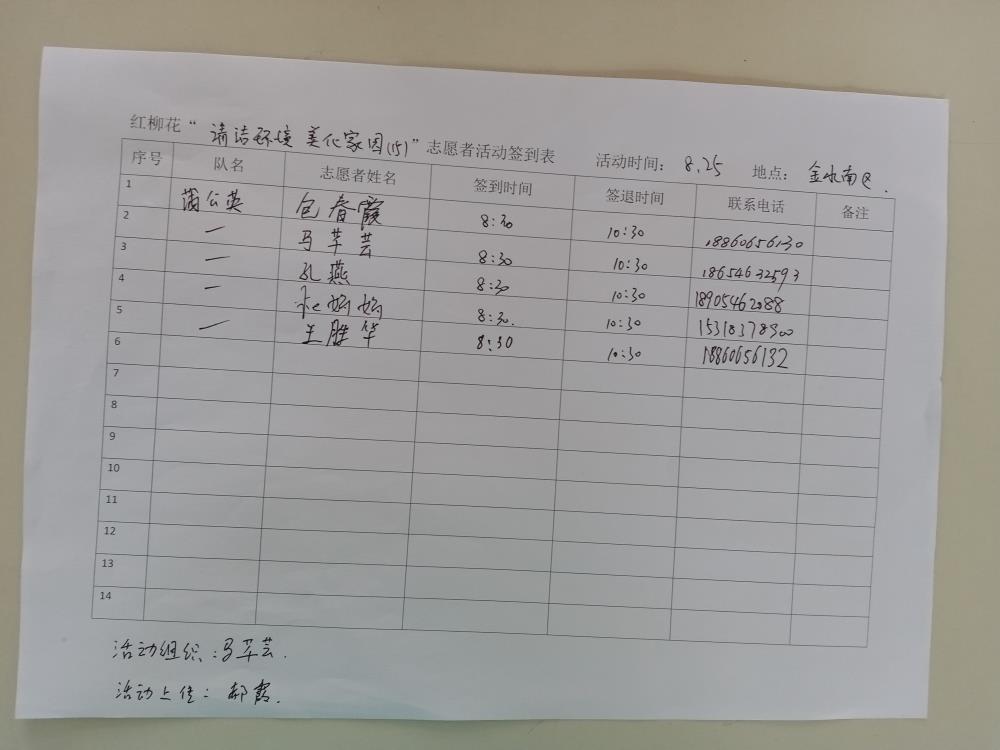 红柳花“清洁环境 美化家园(15)”志愿者活动签到表 活动时间： 8.25 地点： 金水南区.
序号 队名 志愿者姓名 签到时间 签退时间 联系电话 备注
1 蒲公英 包春霞 8:30 10:30 18860656130
2 一 马苹芸 8:30 10:30 18654632593
3 一 孔燕 8:30 10:30 18905462088
4 一 娟娟 8:30. 10:30 15318378300
5 一 王胜华 8:30 10:30 18860656132
6
7
8
9
10
11
12
13
14
活动组织:马苹芸.
活动上传: 郝霞.